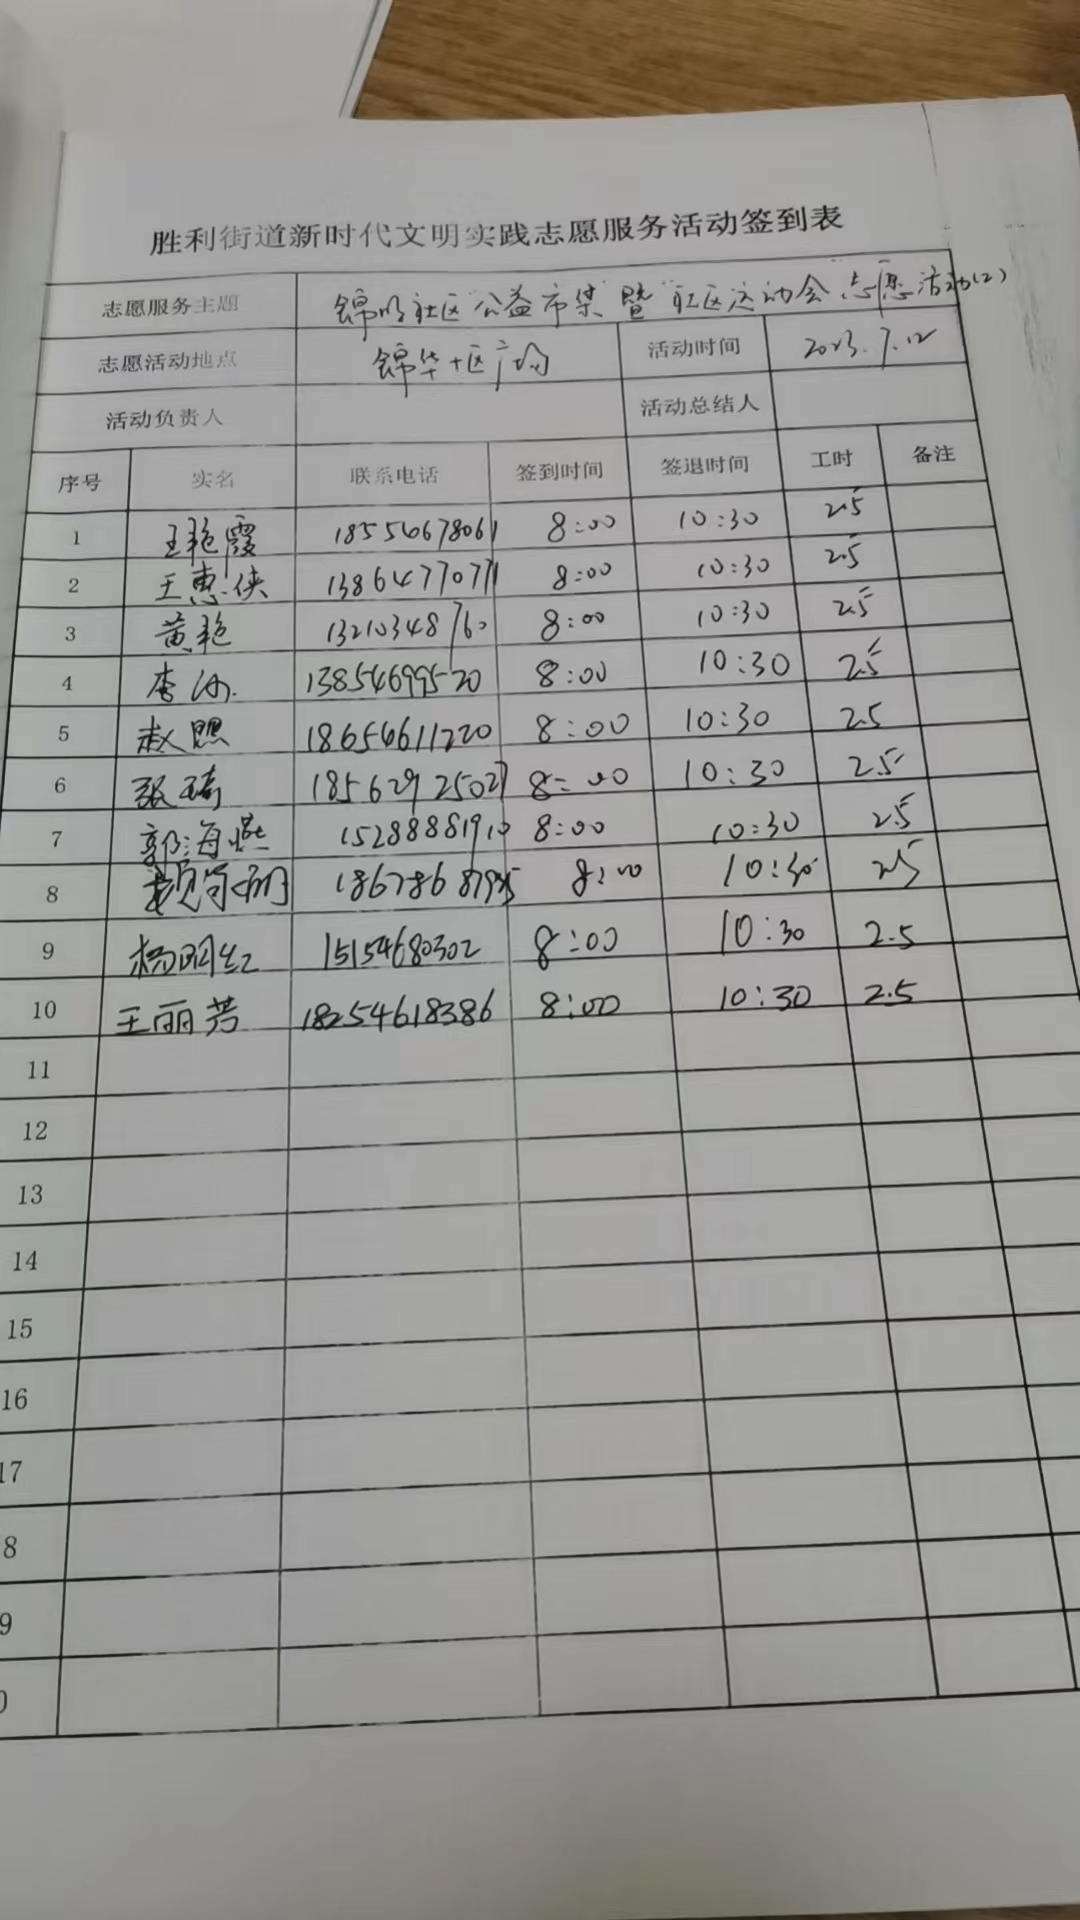 胜利街道新时代文明实践志愿服务活动签到表
志愿服务主题 锦明社区"公益市集"暨"社区运动会"志愿活动(2)
志愿活动地点 锦华十区广场 活动时间 2023.7.12
活动负责人 活动总结人
序号 实名 联系电话 签到时间 签退时间 工时 备注
1 王艳霞 18554678061 8:00 10:30 2.5
2 王惠侠 13864770771 8:00 10:30 2.5
3 黄艳 13210348760 8:00 10:30 2.5
4 李 13854699520 8:00 10:30 2.5
5 赵照 18654611220 8:00 10:30 2.5
6 张琦 18562925027 8:00 10:30 2.5
7 郭海燕 15288881910 8:00 10:30 2.5
8 8:00 10:30 2.5
9 杨明红 15154680302 8:00 10:30 2.5
10 王丽芳 18254618386 8:00 10:30 2.5
11
12
13
14
15
16
17
8
9
0